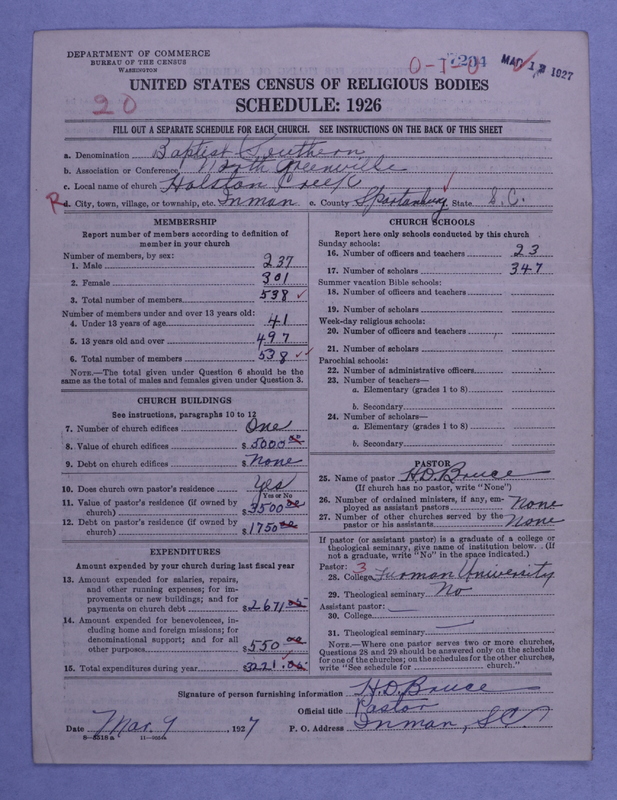 DEPARTMENT OF COMMERCE
BUREAU OF THE CENSUS
WASHINGTON
0-1-0
MAR 12 1927
20
UNITED STATES CENSUS OF RELIGIOUS BODIES
SCHEDULE: 1926
FILL OUT A SEPARATE SCHEDULE FOR EACH CHURCH. SEE INSTRUCTIONS ON THE BACK OF THIS SHEET
a. Denomination Baptist Southern
b. Association or Conference North Greenville
c. Local name of church Holston Creek
R d. City, town, village, or township, etc. Inman e. County Spartanburg State S.C.
MEMBERSHIP
Report number of members according to definition of
member in your church
Number of members, by sex:
1. Male 237
2. Female 301
3. Total number of members 538
Number of members under and over 13 years old:
4. Under 13 years of age 41
5. 13 years old and over 497
6. Total number of members 538
NOTE.—The total given under Question 6 should be the
same as the total of males and females given under Question 3.
CHURCH BUILDINGS
See instructions, paragraphs 10 to 12
7. Number of church edifices One
8. Value of church edifices $ 5000 00
9. Debt on church edifices $ None
10. Does church own pastor's residence Yes
Yes or No
11. Value of pastor's residence (if owned by
church) $ 3500 00
12. Debt on pastor's residence (if owned by
church) $ 1750 00
EXPENDITURES
Amount expended by your church during last fiscal year
13. Amount expended for salaries, repairs,
and other running expenses; for im-
provements or new buildings; and for
payments on church debt $ 2671
14. Amount expended for benevolences, in-
cluding home and foreign missions; for
denominational support; and for all
other purposes $ 550 00
15. Total expenditures during year $ 3221
CHURCH SCHOOLS
Report here only schools conducted by this church
Sunday schools:
16. Number of officers and teachers 23
17. Number of scholars 347
Summer vacation Bible schools:
18. Number of officers and teachers
19. Number of scholars
Week-day religious schools:
20. Number of officers and teachers
21. Number of scholars
Parochial schools:
22. Number of administrative officers
23. Number of teachers—
a. Elementary (grades 1 to 8)
b. Secondary
24. Number of scholars—
a. Elementary (grades 1 to 8)
b. Secondary
PASTOR
25. Name of pastor H.D. Bruce
(If church has no pastor, write "None")
26. Number of ordained ministers, if any, em-
ployed as assistant pastors None
27. Number of other churches served by the
pastor or his assistants None
If pastor (or assistant pastor) is a graduate of a college or
theological seminary, give name of institution below. (If
not a graduate, write "No" in the space indicated.)
Pastor: 3
28. College Furman University
29. Theological seminary No
Assistant pastor:
30. College
31. Theological seminary
NOTE.—Where one pastor serves two or more churches,
Questions 28 and 29 should be answered only on the schedule
for one of the churches; on the schedules for the other churches,
write "See schedule for church."
Signature of person furnishing information H.D. Bruce
Official title Pastor
Date Mar. 9, 1927 P. O. Address Inman, S.C.